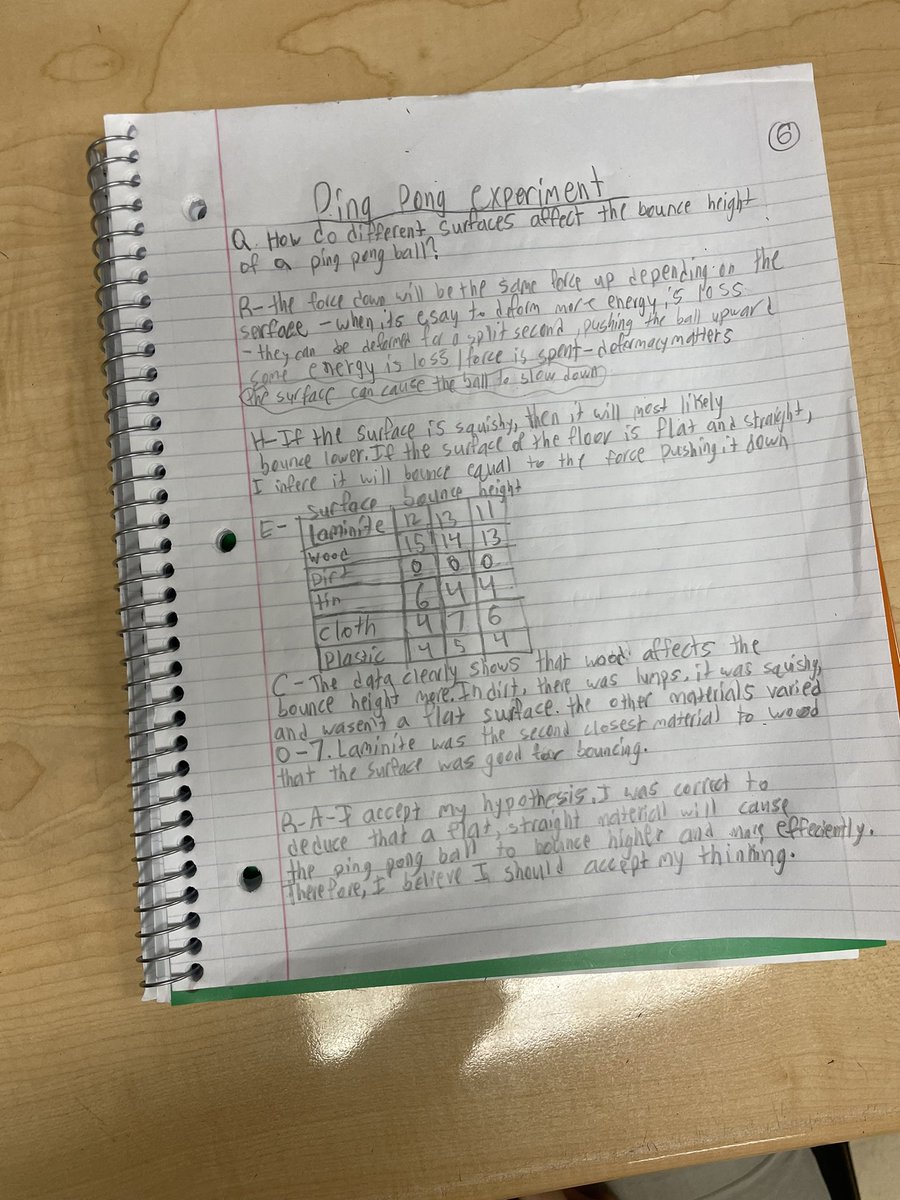 6
Ping Pong experiment
Q. How do different surfaces affect the bounce height
of a ping pong ball?
R- the force down will be the same force up depending on the
serface - when its esay to deform more energy is loss
- they can be deformed for a split second, pushing the ball upward
some energy is loss / force is spent - deformacy matters
the surface can cause the ball to slow down
H- If the surface is squishy, then it will most likely
bounce lower. If the surface of the floor is flat and straight,
I infere it will bounce equal to the force pushing it down
surface bounce height
E- laminite 12 13 11
wood 15 14 13
Dirt 0 0 0
tin 6 4 4
cloth 4 7 6
Plastic 4 5 4
C- The data clearly shows that wood affects the
bounce height more. In dirt, there was lumps, it was squishy,
and wasen't a flat surface. the other materials varied
0-7. Laminite was the second closest material to wood
that the surface was good for bouncing.
R-A-I accept my hypothesis. I was correct to
deduce that a flat, straight material will cause
the ping pong ball to bounce higher and more effeciently.
Therefore, I believe I should accept my thinking.